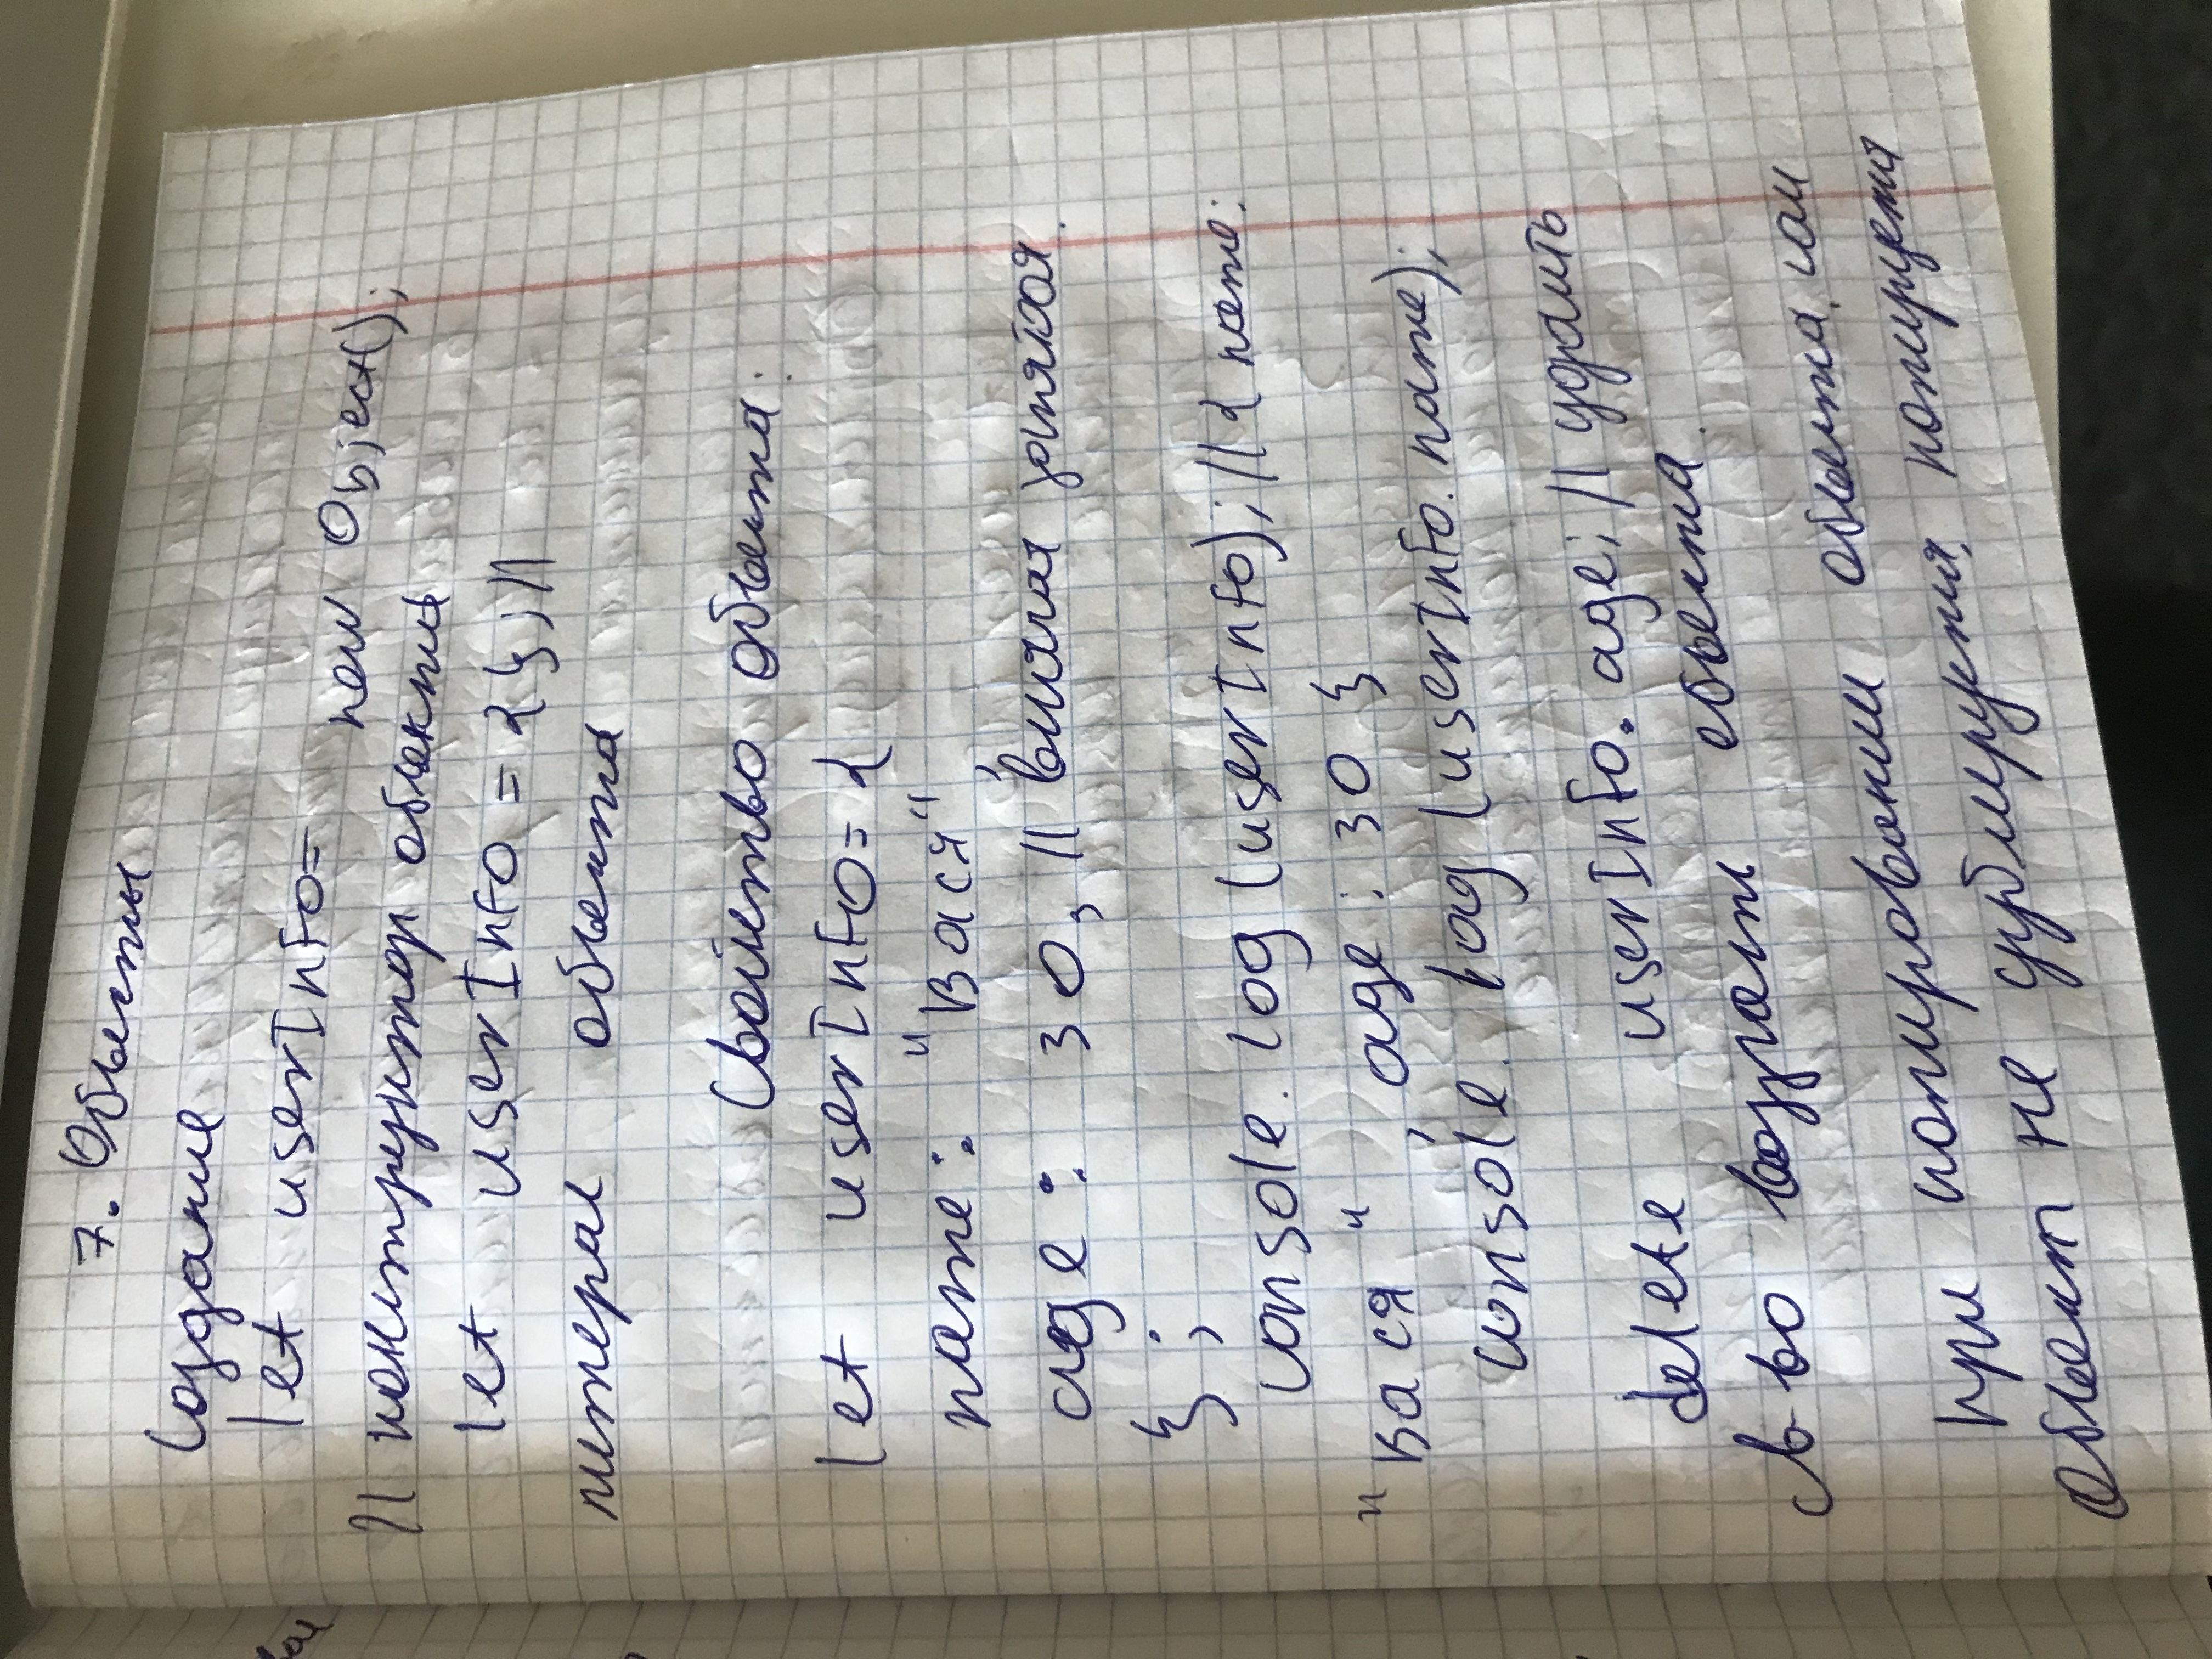 7. Объекты
Создание
let userInfo=
new Object();
// конструктор объекта
let userInfo = {}; //
литерал объекта
Свойство объекта:
let userInfo= {
name: "Вася",
age: 30, // висячая запятая.
};
console. log (userInfo); // { name:
"Вася", age: 30 }
console. log (userInfo. name);
delete userInfo. age; // удалить
св во возраст объекта.
При копировании объекта, сам
объект не дублируется, копируется